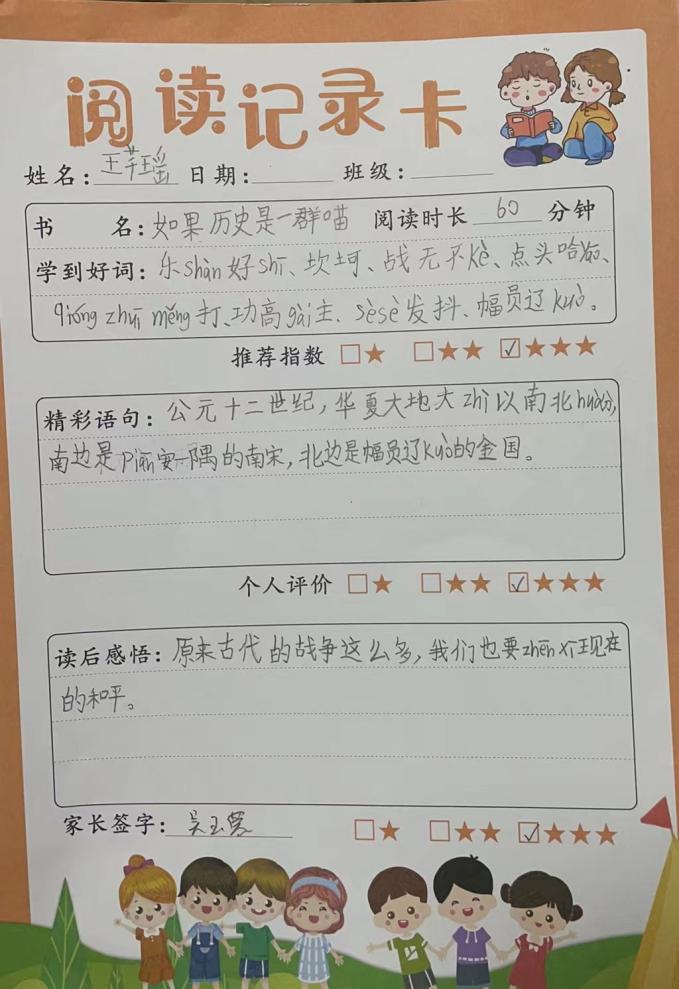 阅读记录卡
姓名：王芊瑶 日期： 班级：
书 名：如果历史是一群喵 阅读时长 60 分钟
学到好词：乐shàn好shī、坎坷、战无不kè、点头哈腰、
qióng zhuī měng打、功高gài主、sèsè发抖、幅员辽kuò。
推荐指数 □★ □★★ ☑★★★
精彩语句：公元十二世纪，华夏大地大zhì以南北huà分，
南边是piān安一隅的南宋，北边是幅员辽kuò的金国。
个人评价 □★ □★★ ☑★★★
读后感悟：原来古代的战争这么多，我们也要zhēn xī现在
的和平。
家长签字：吴玉 □★ □★★ ☑★★★